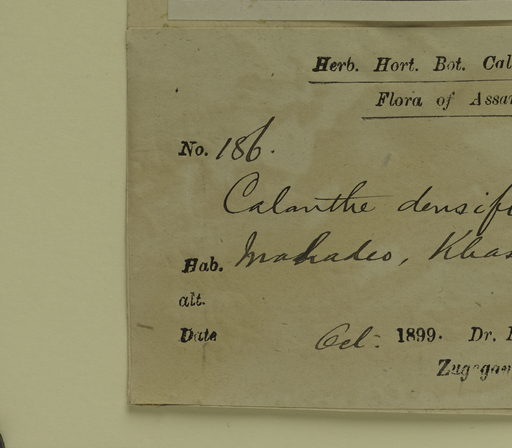 Herb. Hort. Bot. Cal
Flora of Assa
No. 186.
Calanthe densifl
Hab. Mahadeo, Khas
alt.
Date Oct. 1899. Dr.